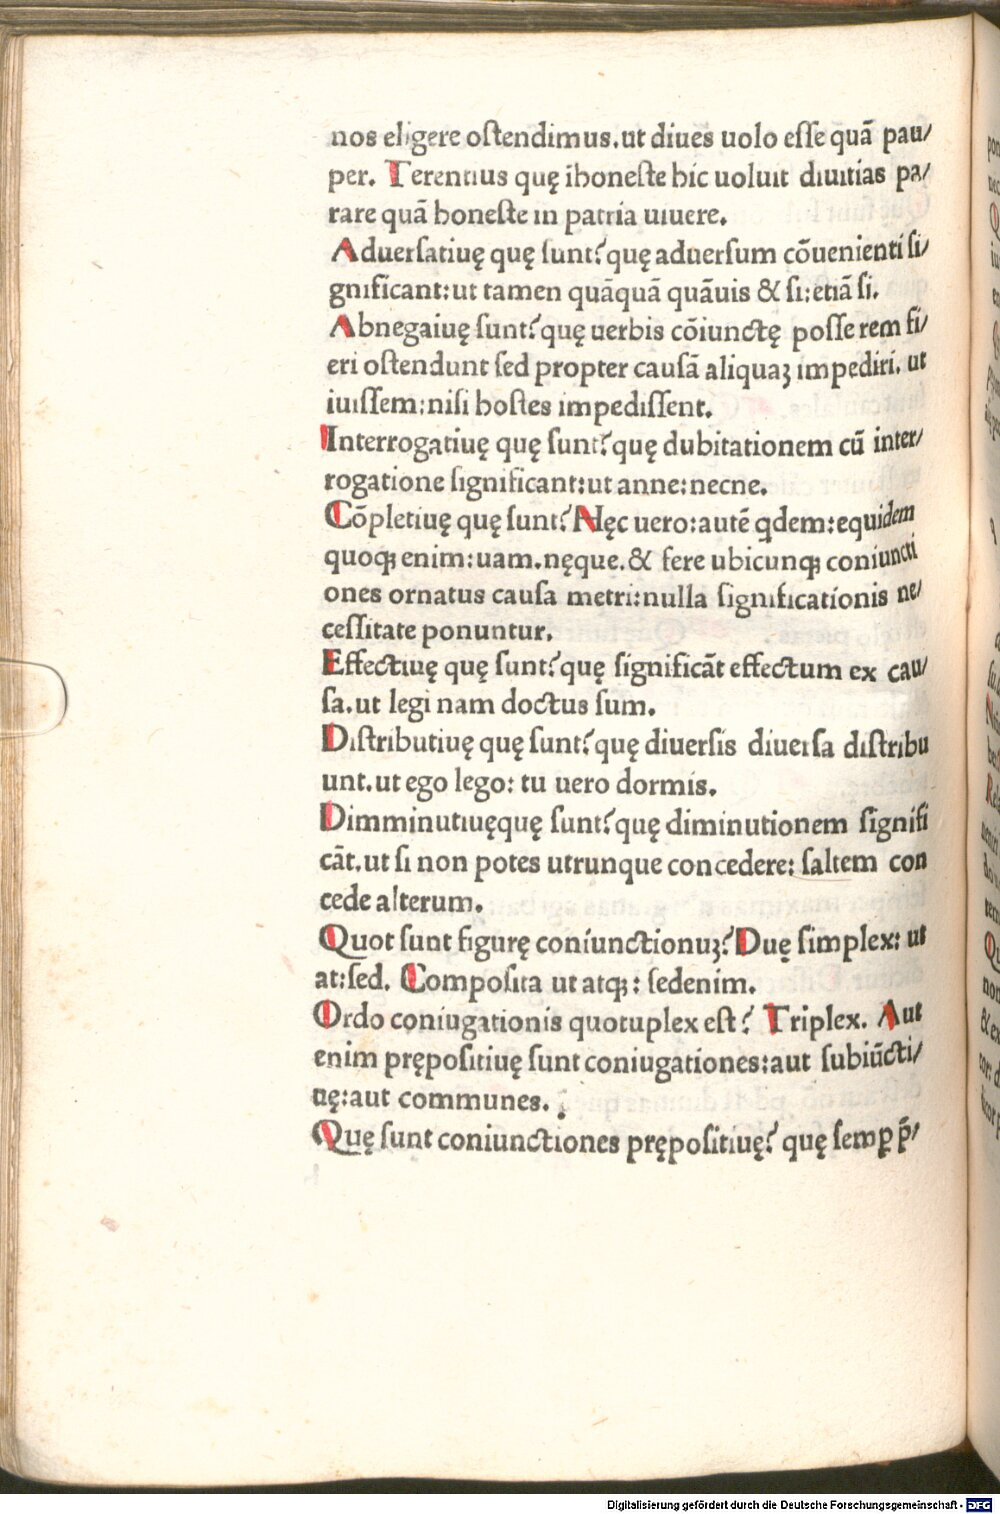 nos eligere oſtendimus.ut diues uolo eſſe quā pau/
per. Terentius quę īhoneſte hic uoluit diuitias pa/
rare quā honeſte in patria uiuere.
Aduerſatiuę quę ſunt? quę aduerſum cōuenienti ſi/
gnificant: ut tamen quāquā quāuis & ſi: etiā ſi.
Abnegaiuę ſunt? quę uerbis cōiunctę poſſe rem fi/
eri oſtendunt ſed propter cauſā aliquaꝫ impediri. ut
iuiſſem: niſi hoſtes impediſſent.
Interrogatiuę quę ſunt? quę dubitationem cū inter/
rogatione ſignificant: ut anne: necne.
Cōpletiuę quę ſunt? Nęc uero: autē qdem: equidem
quoqꝫ enim: uam. nęque. & fere ubicunqꝫ coniuncti
ones ornatus cauſa metri: nulla ſignificationis ne/
ceſſitate ponuntur.
Effectiuę quę ſunt? quę ſignificāt effectum ex cau/
ſa. ut legi nam doctus ſum.
Diſtributiuę quę ſunt? quę diuerſis diuerſa diſtribu
unt. ut ego lego: tu uero dormis.
Dimminutiuęquę ſunt? quę diminutionem ſignifi
cāt. ut ſi non potes utrunque concedere: ſaltem con
cede alterum.
Quot ſunt figurę coniunctionuꝫ? Duę ſimplex: ut
at: ſed. Compoſita ut atqꝫ: ſedenim.
Ordo coniugationis quotuplex eſt? Triplex. Aut
enim prępoſitiuę ſunt coniugationes: aut ſubiūcti/
uę: aut communes.
Quę ſunt coniunctiones prępoſitiuę? quę ſemꝑ p̄/
Digitalisierung gefördert durch die Deutsche Forschungsgemeinschaft - DFG